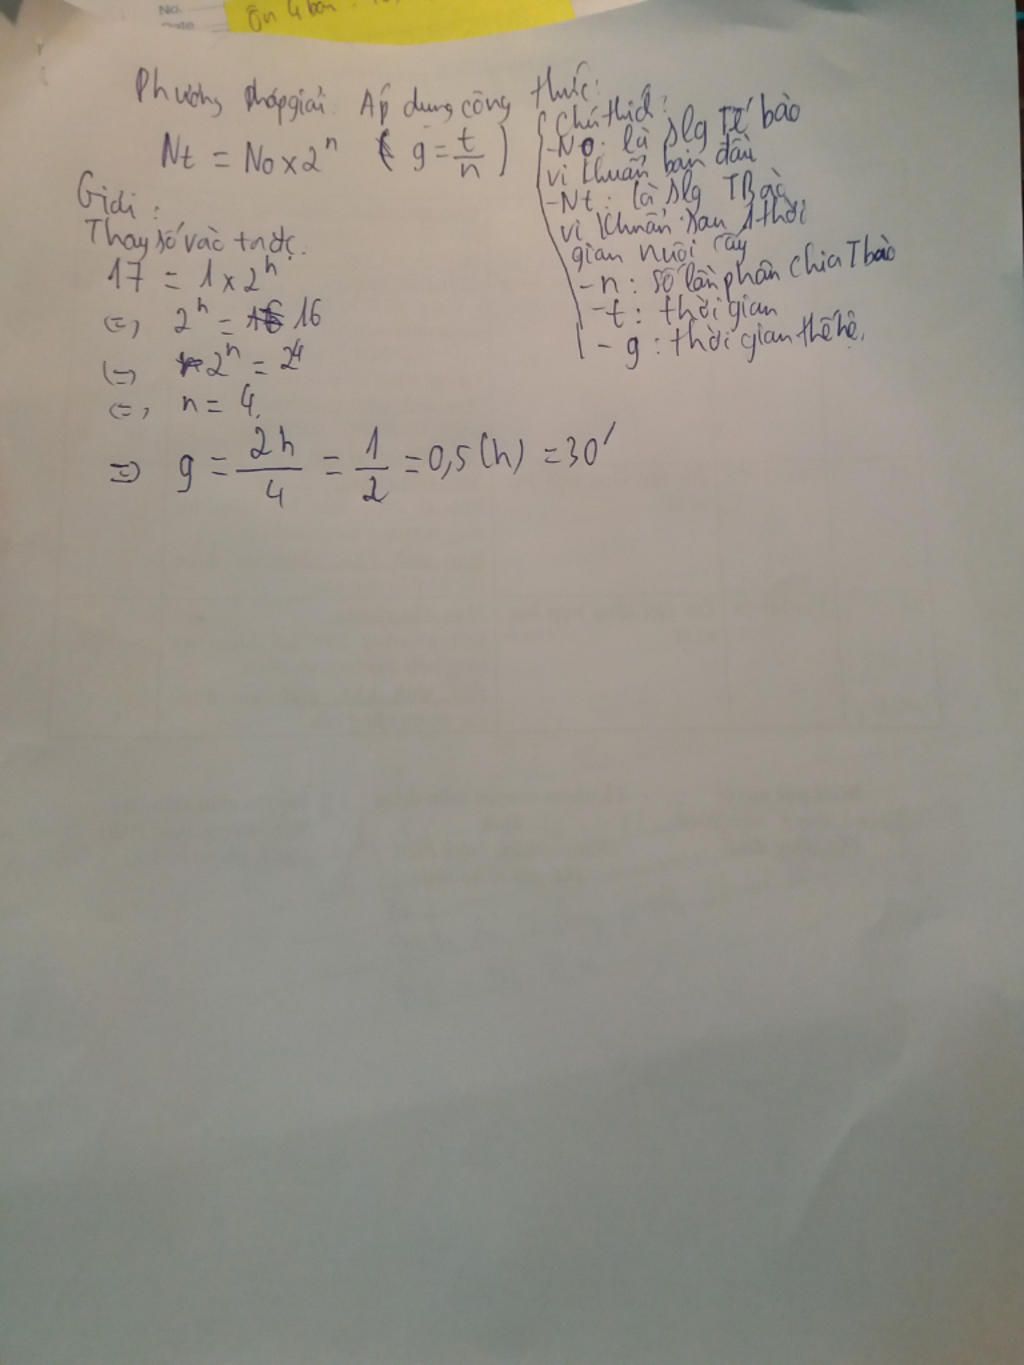 No.
Date
Ôn 4 bài
Phương pháp giải: Áp dụng công thức:
Nt = No x 2^n ( g = t/n )
Chú thích:
- No: là slg Tế bào
vi khuẩn ban đầu
- Nt: là slg TBào
vi khuẩn sau 1 thời
gian nuôi cấy
- n: số lần phân chia Tbào
- t: thời gian
- g: thời gian thế hệ.
Giải:
Thay số vào ta đc.
17 = 1 x 2^n
(=) 2^n = 16
(=) 2^n = 2^4
(=) n = 4.
=> g = 2h/4 = 1/2 = 0,5 (h) = 30'